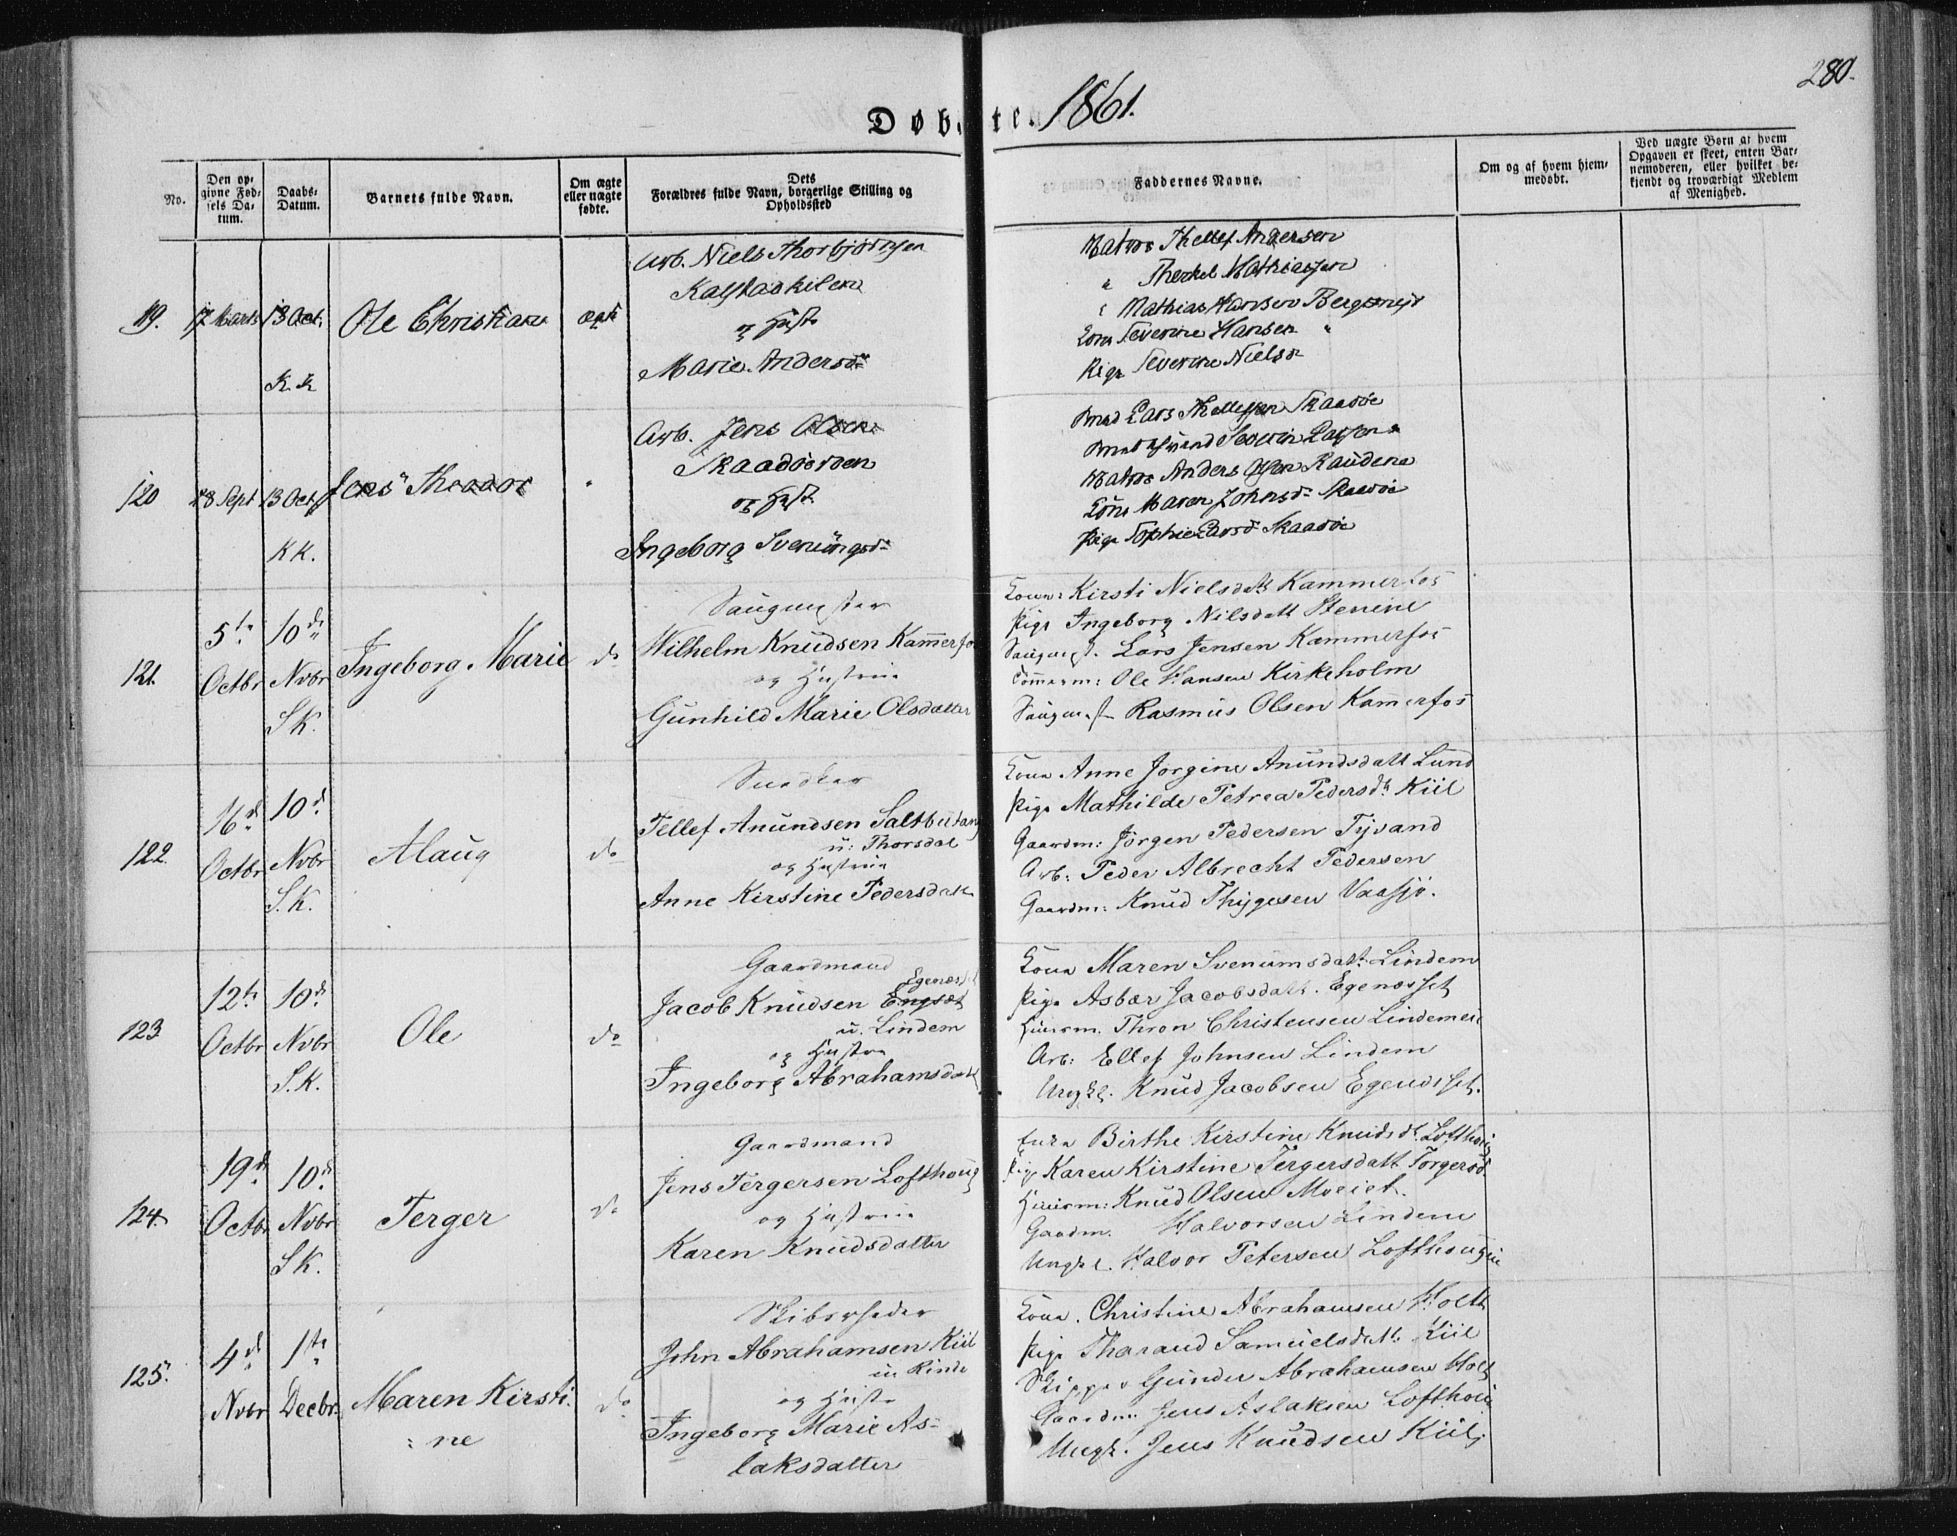 280.
Døbte. 1861.
No.
Den opgivne Fødsels Datum.
Daabs-Datum.
Barnets fulde Navn.
Om ægte eller uægte fødte.
Dets Forældres fulde Navn, borgerlige Stilling og Opholdssted
Faddernes Navne.
Om og af hvem hjemmedøbt.
Ved uægte Børn at hvem Opgaven er skeet, enten Barnemoderen, eller hvilket bekjendt og troværdigt Medlem af Menighed.
119. 17 Marts 13 Oct. K.K Ole Christian ægte
Arb. Niels Thorbjørnsen
Kalstadkilen
og Hustr
Marie Andersd
Matros Thellef Andersen
" Therkel Mathiassen
" Mathias Hansen
Kone Severine Hansen "
Pige Severine Nielsd
120 18 Sept 13 Oct KK. Jens Theodor "
Arb. Jens Olsen
Skaadøeroen
og Hustr
Ingeborg Sveningsd
Lars Thellefsen Skaadøe
Severin Larsen
Matros Anders Olsen Raudene
Kone Maren Johnsd Skaadøe
Pige Sophie Larsd Skaadøe
121. 5te Octbr 10de Novbr S.K. Ingeborg Marie do
Saugmester
Wilhelm Knudsen Kammerfos
og Hustrue
Gunhild Marie Olsdatter
Kone: Kirsti Nielsdatt Kammerfos
Pige Ingeborg Nilsdatt Stenine
Saugmest. Lars Jensen Kammerfos
Tømmerm: Ole Hansen Kirkeholm
Saugmest Rasmus Olsen Kammerfos
122. 16d Octbr 10d Novbr S.K. Alaug do
Snedker
Tellef Anundsen Saltbutang
u: Thorsdal
og Hustrue
Anne Kirstine Pedersdatt
Kone Anne Jørgine Anundsdatt Lund
Pige Mathilde Petrea Pedersdt Kiil
Gaardm: Jörgen Pedersen Tyvand
Arb: Peder Albrecht Pedersen
Gaardm: Knud Thygesen Vaasjø.
123 12te Octbr 10d Novbr S.K. Ole do
Gaardmand
Egenæsset
Jacob Knudsen Engsæt
u. Lindem
og Hustru
Ingeborg Abrahamsdatt
Kone Maren Sveniumsdatt. Lindem
Pige Asbær Jacobsdatt. Egenæsset
Huusm. Thron Christensen Lindemeie
Arb: Ellef Johnsen Lindem
Ungk. Knud Jacobsen Egenæsset.
124. 19d Octbr 10d Novbr S.K. Terger do
Gaardmand
Jens Tergersen Lofthoug
og Hustrue
Karen Knudsdatter
Birthe Kirstine Knudsdt Lofthoug
Pige Karen Kirstine Tergersdatt Torgersd
Huusm: Knud Olsen Moeiet.
Gaardm. Halvorsen Lindem
Ungk. Halvor Petersen Lofthougeie
125. 4d Novbr 1ste Decbr. Maren Kirstine do
Skibsrheder
John Abrahamsen Kiil
u Rinde
og Hustr
Ingeborg Marie As-
laksdatter
Kone. Christine Abrahamsen Holt
Pige Tharand Samuelsdatt. Kiil
Skipper Gunder Abrahamsen Holt
Gaardm: Jens Aslaksen Lofthoug
Ungk. Jens Knudsen Kiil